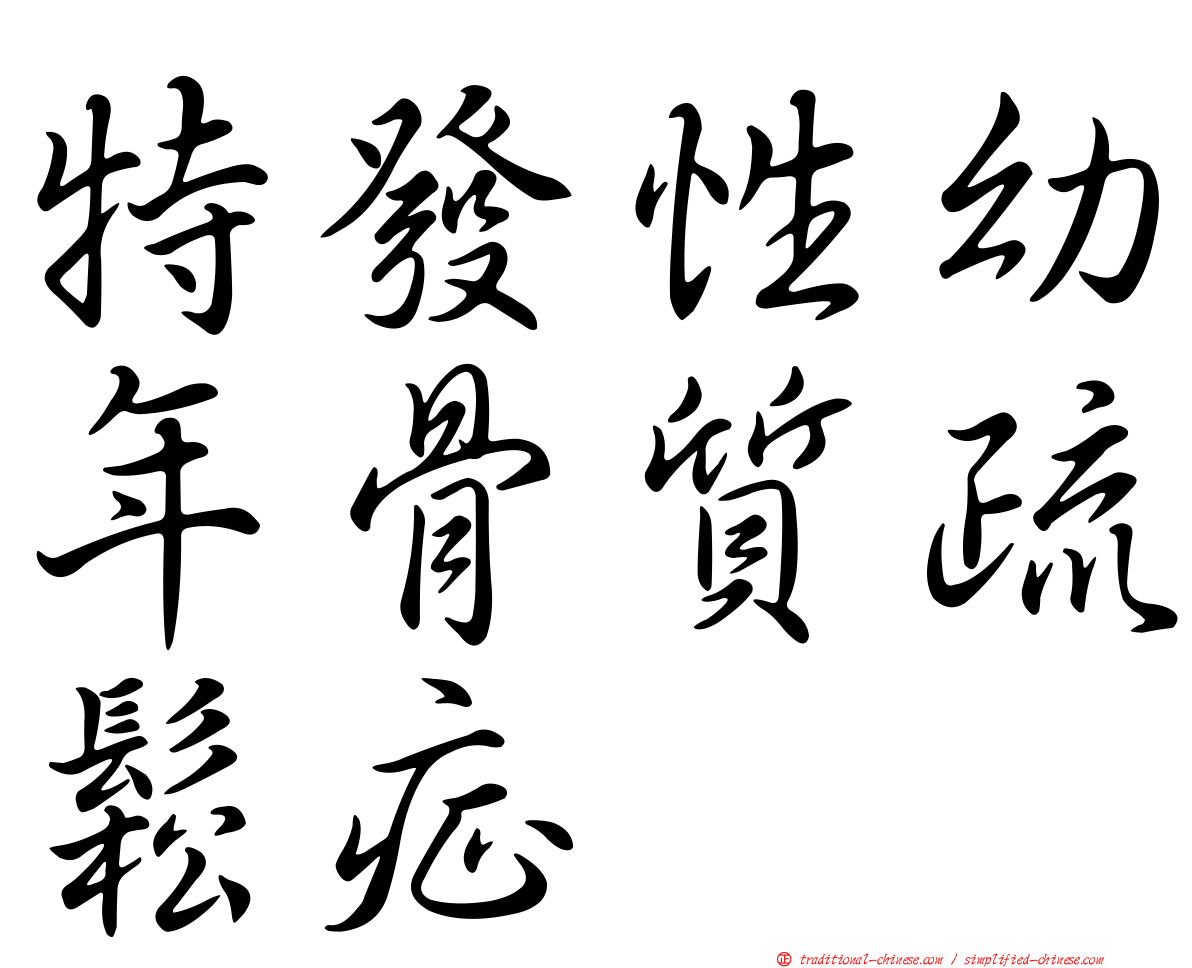 特發性幼
年骨質疏
鬆症
㊣ traditional-chinese.com / simplified-chinese.com